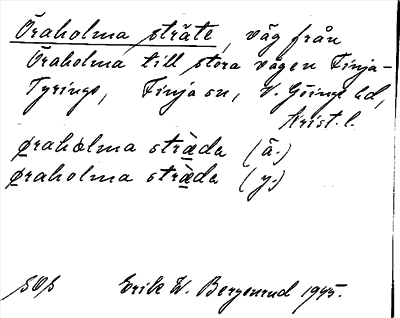 Öraholma sträte, väg från
Öraholma till stora vägen Finja-
Tyringe, Finja sn, V. Göinge hd,
Krist. l.
øraholma sträda (ä.)
øraholma sträda (y.)
SOS Erik W. Bergenrud 1945.